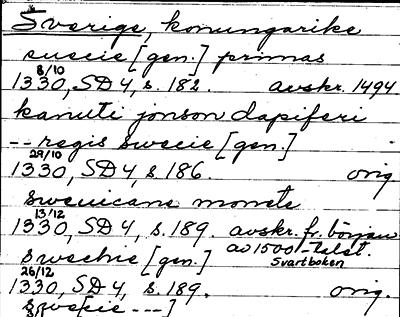 Sverige, konungarike
suecie [gen.] primas
1330 8/10, SD 4, s. 182. avskr. 1494
kanuti jonson dapiferi
-- regis swecie [gen.]
1330 29/10, SD 4, s. 186. orig
swenicane monete
1330 13/12, SD 4, s. 189. avskr. fr. början
av 1500-talet.
Svartboken
swechie [gen.]
1330 26/12, SD 4, s. 189. orig.